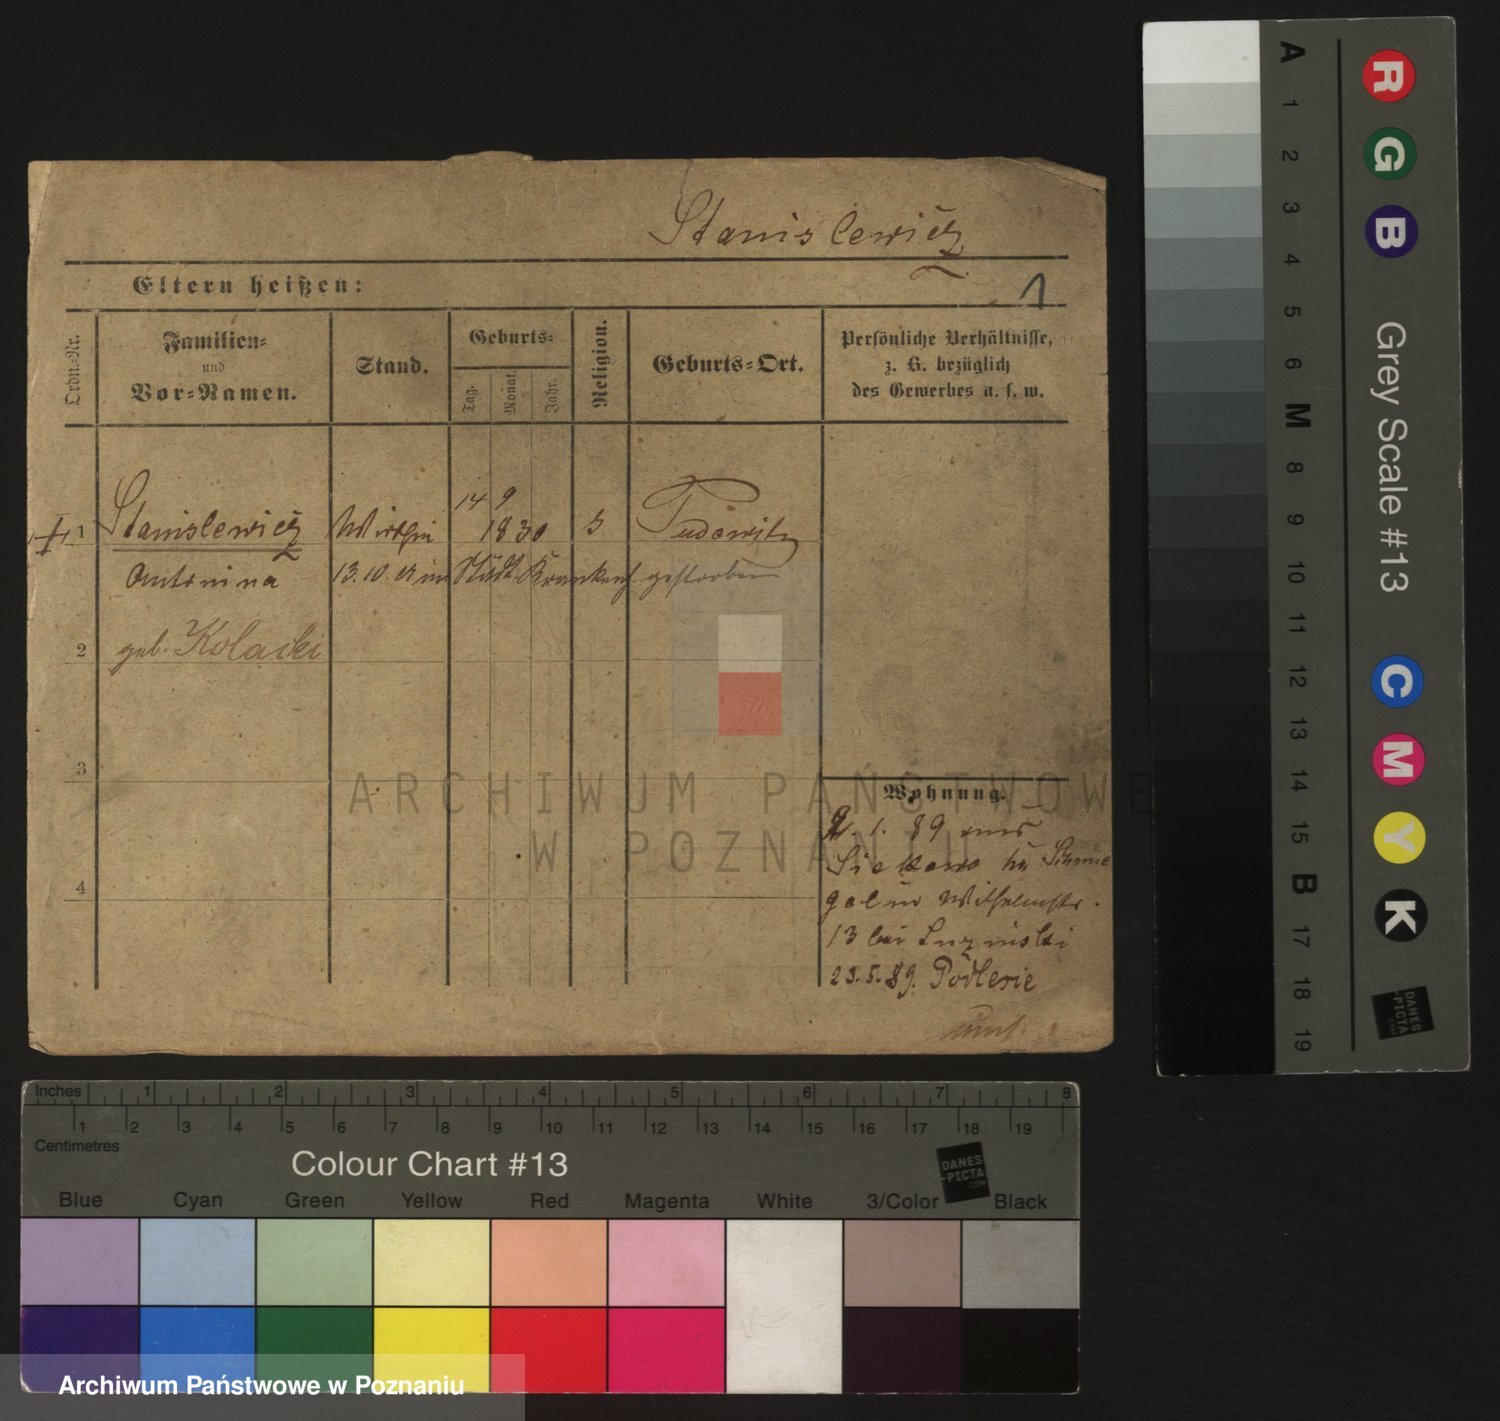 Stanislewicz
Eltern heißen:
1
Ordn.-Nr.
Familien-
und
Vor-Namen.
Stand.
Geburts-
Tag.
Monat.
Jahr.
Religion.
Geburts-Ort.
Persönliche Verhältnisse,
z. B. bezüglich
des Gewerbes u. s. w.
14 9
1 Stanislewicz Wirthin 1830
Antonina 13.10. im Städt. Krankenh. gestorben
2 geb. Kolacki
3
4
Wohnung.
2. 1. 89 aus
gel in Wilhelmstr.
13 bei
23.5.89. Podlesie
ARCHIWUM PAŃSTWOWE
W POZNANIU
A 1 2 3 4 5 6 M 8 9 10 11 12 13 14 15 B 17 18 19
R G B
Grey Scale #13
C M Y K
DANES
-PICTA
.COM
Inches 1 2 3 4 5 6 7 8
1 2 3 4 5 6 7 8 9 10 11 12 13 14 15 16 17 18 19
Centimetres
Colour Chart #13
DANES
-PICTA
.COM
Blue Cyan Green Yellow Red Magenta White 3/Color Black
Archiwum Państwowe w Poznaniu